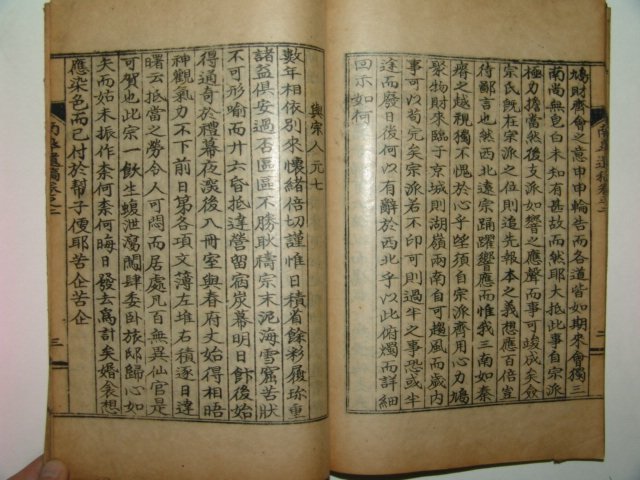 鳩財齊會之意申申輪告而各道皆如期來會獨三
南尚無皂白未知有甚故而然耶大抵此事自宗派
極力擔當然後支派如響之應聲而事可竣成矣僉
宗氏旣在宗派之位則追先報本之義想應百倍豈
待鄙言也然西北遠宗踴躍響應而惟我三南如秦
瘠之越視獨不愧於心乎玆須自宗派齊用心力鳩
聚物財來臨于京城則湖嶺兩南自可趨風而歲內
事可以苟完矣宗派若不印可則過半之事恐或半
途而廢日後何以有辭於西北乎以此俯燭而詳細
回示如何
與宗人元七
數年相依別來懷緖倍切謹惟日積省餘彩履珍重
諸益俱安過否區區不勝耿禱宗末泥海雪窖苦狀
不可形喩而廿六㫮抵達營留宿炭幕明日飰後始
得通奇於禮幕夜深後入冊室與春府丈始得相晤
神觀氣力不下前日第各項文簿左堆右積逐日達
曙云抵當之勞令人可悶而居處凡百無異仙官是
可賀也此宗一飮生蝮泄瀉闖肆委卧旅邸歸心如
矢而姑未振作柰何柰何晦日發去爲計矣婚衾想
應染色而已付於幫子便耶苦企苦企
遺稿卷之二
三